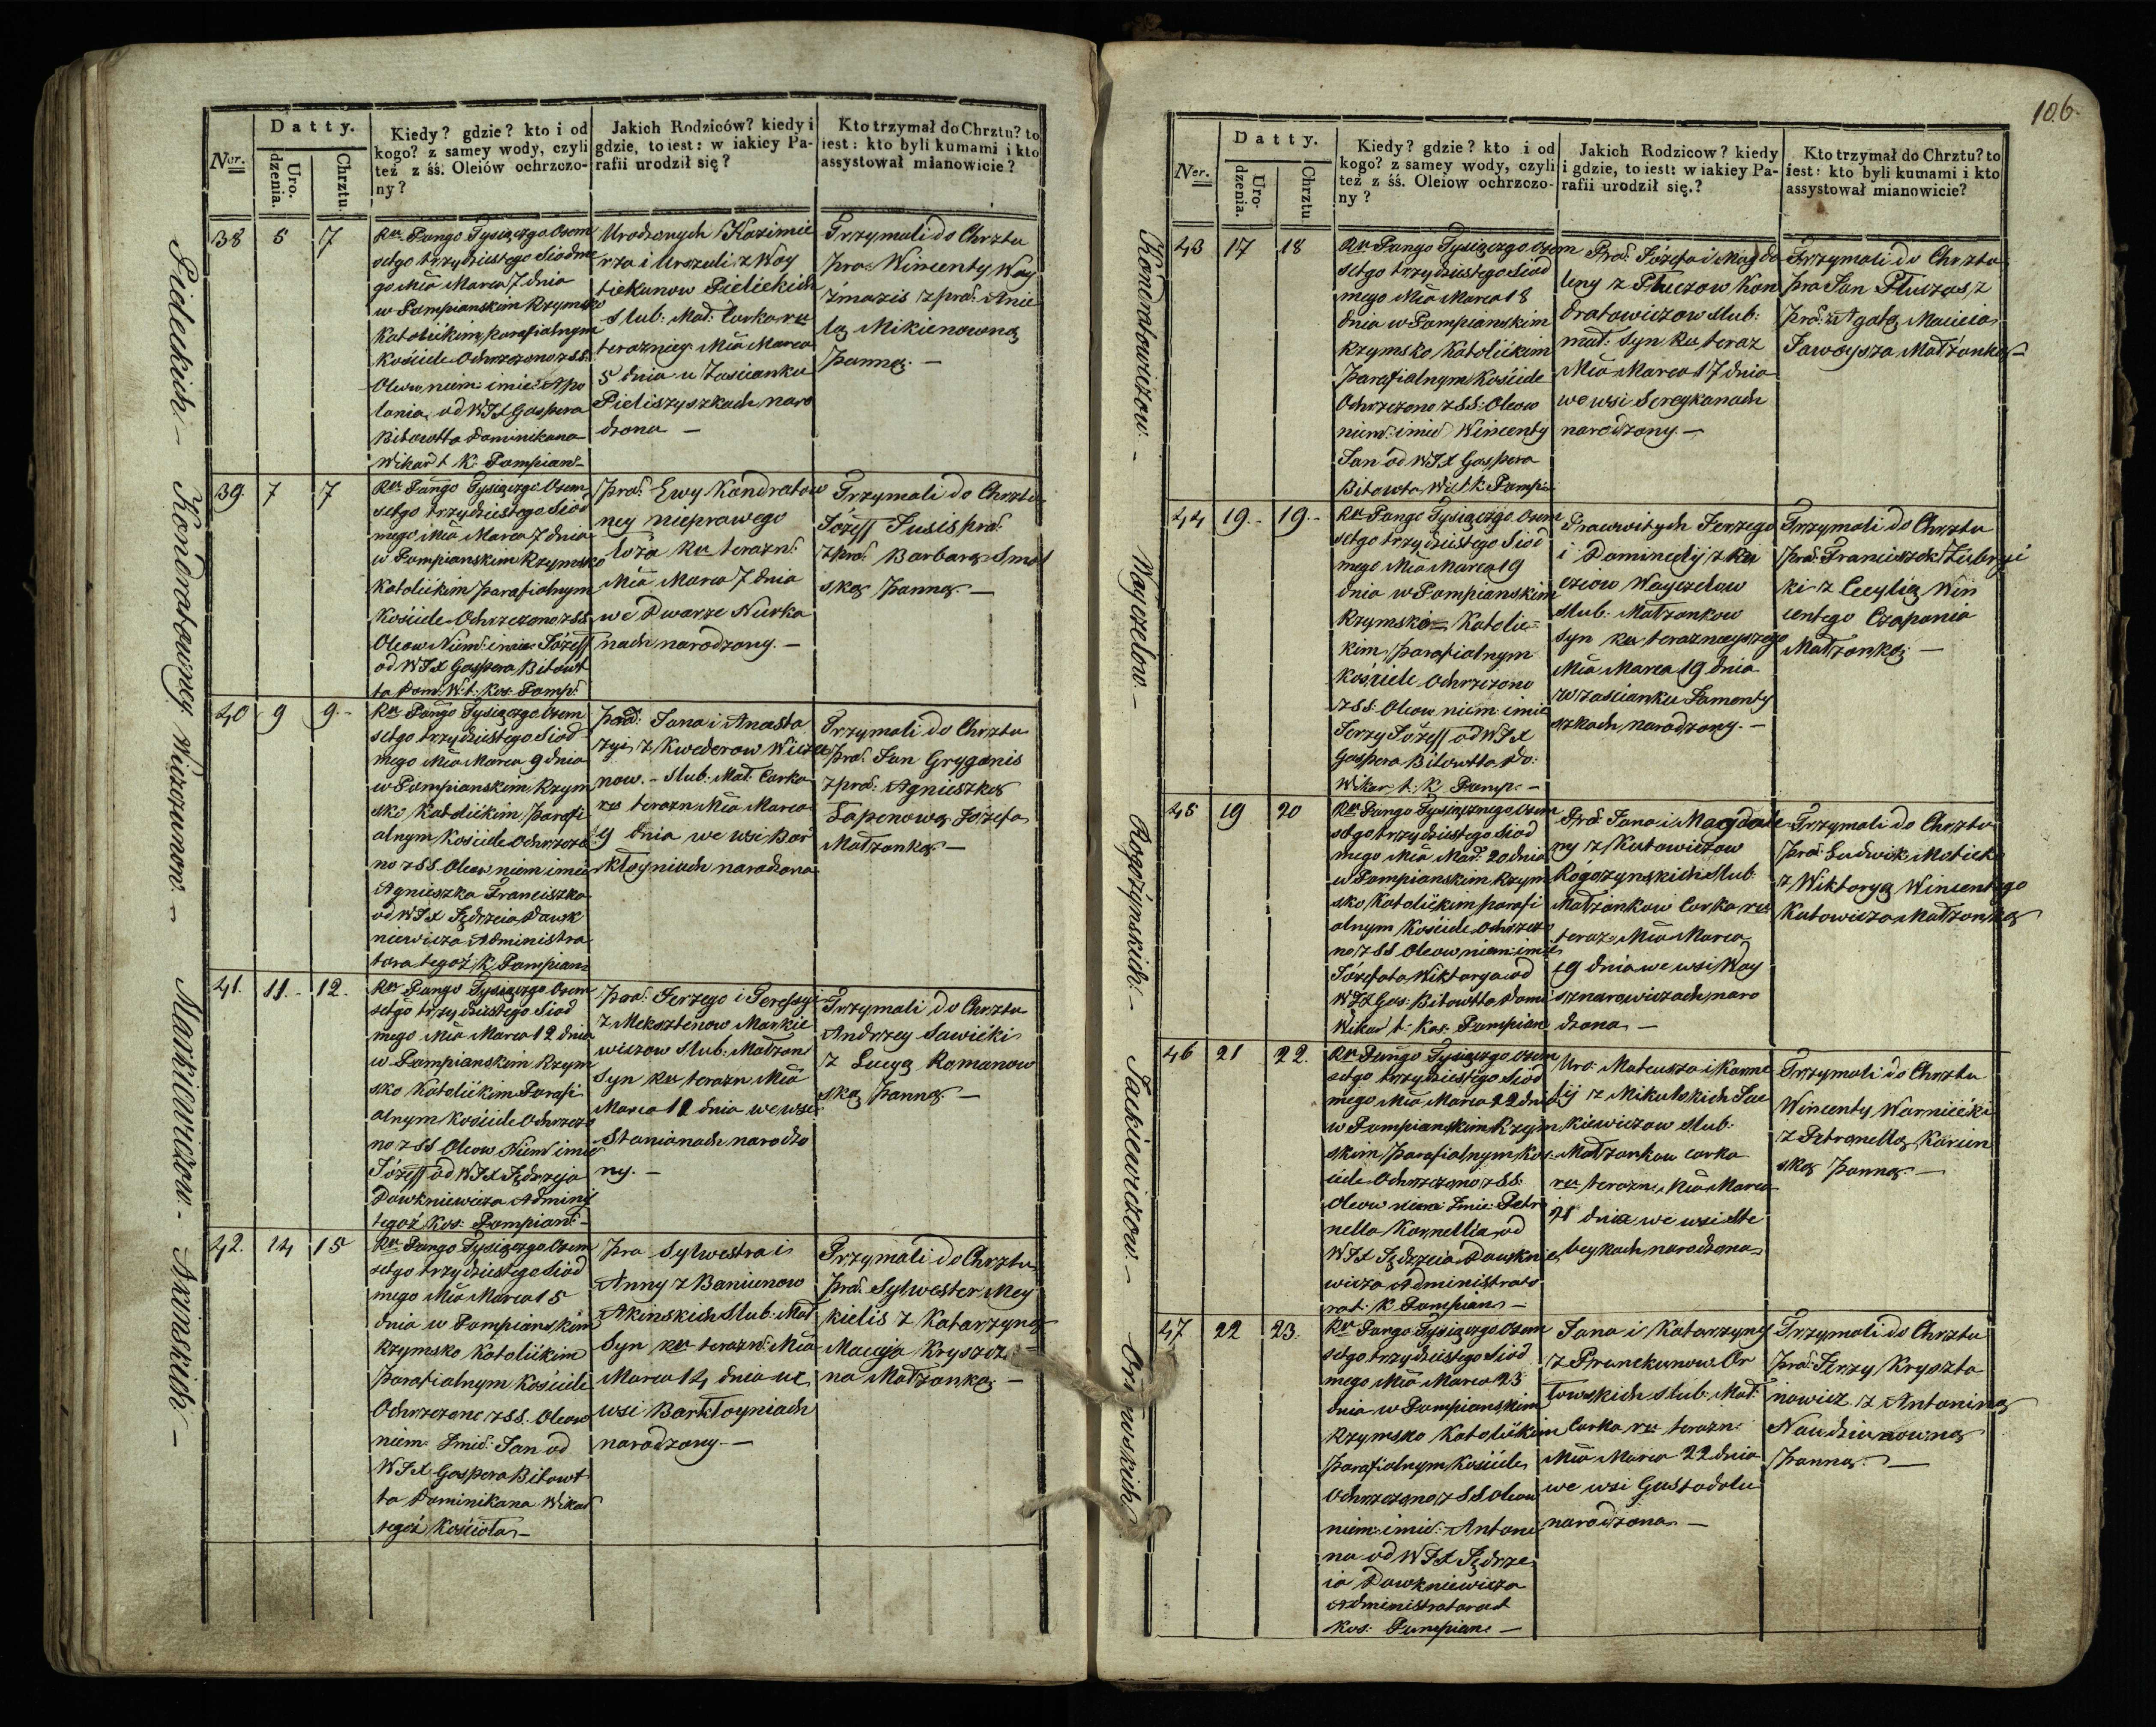 Datty.
Ner.
Uro-
dzenia.
Chrztu.
Kiedy? gdzie? kto i od
kogo? z samey wody, czyli
też z śś. Oleiów ochrzczo-
ny?
Jakich Rodziców? kiedy i
gdzie, to iest: w iakiey Pa-
rafii urodził się?
Kto trzymał do Chrztu? to
iest: kto byli kumami i kto
assystował mianowicie?
Pielickich –
38 5 7
Ru Pango Tysiączgo Osem
setgo trzydziestego Siodme
go Mca Marca 7 dnia
w Pompianskim Rzymsko
Katolickim parafialnym
Kościele Ochrzczono z SS.
Oleow niem: imie: Apo
lonia, od WJX Gaspera
Bitowtta Dominikana
Wikar t K: Pompian:
Urodzonych Kazimie
rza i Urszuli z Woy
tiekunow Pielickich
Slub: Mał: Corka ru
teraznieg: Mca Marca
5 dnia w Zascianku
Pieliszyszkach naro
dzona –
Trzymali do Chrztu
Pra: Wincenty Way
zmazis z pra: Anie
lą Mikienowną
Panną. –
39. 7 7
Ru Pango Tysiączgo Osem
setgo trzydziestego Siod
mego Mca Marca 7 dnia
w Pompianskim Rzymsko
Katolickim Parafialnym
Kościele Ochrzczono z SS.
Oleow Niem: imie: Józeff
od WJX Gaspera Bitowt
ta Dom: W: t: kos: Pomp:
Prac: Ewy Kondratow
ney nieprawego
Łoża ru terazn:
Mca Marca 7 dnia
we Dwarze Nurka
nach narodzony. –
Trzymali do Chrztu
Józeff Jusis prac:
z prac: Barbarą Smol
ską Panną. –
40 9 9. –
Ru Pango Tysiączgo Osem
setgo trzydziestego Siod
mego Mca Marca 9 dnia
w Pompianskim Rzym
sko Katolickim, Parafi
alnym Kosciele Ochrzczo
no z SS. Oleow niem imie
Agnieszka Franciszka
od WJX Jędrzeia Dawk
niewicza Administra
tora tegoż K Pompian:
Prac: Jana i Anasta
zyi z Kwederow Wiczu
now. – Slub: Mał: Corka
ru terazn Mca Marca
9 dnia we wsi Bar
kłoyniach narodzona
Trzymali do Chrztu
Pra: Jan Gryganis
z pra: Agnieszką
Łapenową Józefa
Małżonką. –
41. 11. – 12.
Ru Pango Tysiączgo Osem
setgo trzydziestego Siod
mego Mca Marca 12 dnia
w Pompianskim Rzym
sko Katolickim Parafi
alnym Kościele Ochrzczo
no z SS Oleow Niem imie
Józeff od WJX Jędrzeja
Dawkniewicza Adminis
tegoż Kos: Pompian: –
Prac: Jerzego i Teressyi
z Meksztenow Markie
wiczow Slub: Małżon:
Syn ru terazn Mca
Marca 11 dnia we wsi
Stanianach narodzo
ny. –
Trzymali do Chrztu
Andrzey Sawicki
z Lucyą Romanow
ską Panną. –
42. 14 15
Ru Pango Tysiączgo Osem
setgo trzydziestego Siod
mego Mca Marca 15
dnia w Pompianskim
Rzymsko Katolickim
Parafialnym Kościele
Ochrzczono z SS. Oleow
niem: Imie: Jan od
WJX Gaspera Bitowt
ta Dominikana Wikar
tegoż Kościoła –
Pra Sylwestra i
Anny z Baniunow
Akinskich Slub: Mał:
Syn ru terazn: Mca
Marca 14 dnia we
wsi Barkłoyniach
narodzony. –
Trzymali do Chrztu
Prac: Sylwester Mey
kielis z Katarzyną
Macieja
na Małżonką. –
Kondratowney Wiczunow – Markiewiczow – Akinskich –
106.
Datty.
Ner.
Uro-
dzenia.
Chrztu
Kiedy? gdzie? kto i od
kogo? z samey wody, czyli
też z śś. Oleiow ochrzczo-
ny?
Jakich Rodzicow? kiedy
i gdzie, to iest: w iakiey Pa-
rafii urodził się.?
Kto trzymał do Chrztu? to
iest: kto byli kumami i kto
assystował mianowicie?
Kondratowiczow. –
43 17 18
Ru Pango Tysiączgo Osem
setgo trzydziestego Siod
mego Mca Marca 18
dnia w Pompianskim
Rzymsko Katolickim
Parafialnym Kościele
Ochrzczono z SS: Oleow
niem: imie Wincenty
Jan od WJX Gaspera
Bitowta, Wik t k Pompia
Prac: Józefa i Magda
leny z Płuczow Kon
dratowiczow Slub:
mał: Syn Ru teraz
Mca Marca 17 dnia
we wsi Sereykanach
narodzony. –
Trzymali do Chrztu
Pra Jan Pluszas, z
Prac: Agatą Macieia
Jawoysza Małżonką –
44 19. – 19. –
Ru Pango Tysiączgo Osem
setgo trzydziestego Siod
mego Mca Marca 19
dnia w Pompianskim
Rzymsko= Katolic=
kim Parafialnym
Kościele Ochrzczono
z SS: Oleow niem: imie
Jerzy Józeff od WJX
Gaspera Bitowtta Do:
Wikar. t. k. Pomp: –
Pracowitych Jerzego
i Dominedy z Ku
cziow Wayczelow
Slub: Małżonkow
Syn ru teraznieyszego
Mca Marca 19 dnia
w zascianku Jamonty
szkach narodzony. –
Trzymali do Chrztu
Pra: Franciszek Zubryi
ki z Cecylią Win
centego Czapania
Małżonką. –
45 19 20
Ru Pango Tysiącznego Osem
setgo trzydziestego Siod
mego Mca Mar: 20 dnia
w Pompianskim Rzym
sko Katolickim parafi
alnym Kościele Ochrzczo
no z SS Oleow niem: imie
Józefata Wiktorya od
WJX Gas: Bitowtta Domi
Wikar t: kos: Pompian
Prac: Jana i Magdale
ny z Kutowiczow
Rogożynskich Slub:
Małżonkow Corka ru
teraz: Mca Marca
19 dnia we wsi Woy
sznarowiczach naro
dzona –
Trzymali do Chrztu
Prac: Ludwik Motiek
z Wiktoryą Wincentego
Kutowicza Małżonką
46 21 22.
Ru Pango Tysiączgo Osem
setgo trzydziestego Siod
mego Mca Marca 22 dnia
w Pompianskim Rzym
skim Parafialnym Kos
ciele Ochrzczono z SS:
Oleow niem: Imie: Petro
nella Kornellia od
WJX Jędrzeia Dawknie
wicza Administrato
ra t. K Pompian –
Uro: Mateusza i Korne
lij z Mikulskich Jac
kiewiczow Slub:
Małżonkow Corka
ru terazn: Mca Marca
21 dnia we wsi Ste
beykach narodzona
Trzymali do Chrztu
Wincenty Warnicki
z Petronellą Karein
ską Panną. –
47. 22 23.
Ru Pango Tysiączgo Osem
setgo trzydziestego Siod
mego Mca Marca 23
dnia w Pompianskim
Rzymsko Katolickim
Parafialnym Kościele
Ochrzczono z SS Oleow
niem: imie: Antoni
na od WJX Jędrze
ia Dawkniewicza
Administratora t
Kos: Pompian: –
Jana i Katarzyny
z Pranckunow Or
łowskich Slub: Mał:
Corka ru: terazn:
Mca Marca 22 dnia
we wsi Gustadolu
narodzona –
Trzymali do Chrztu
Prac: Jerzy Kryszta
nowicz z Antoniną
Naudziunowną
Panną. –
Wayczelow. – Rogożynskich. – Jackiewiczow – Orłowskich